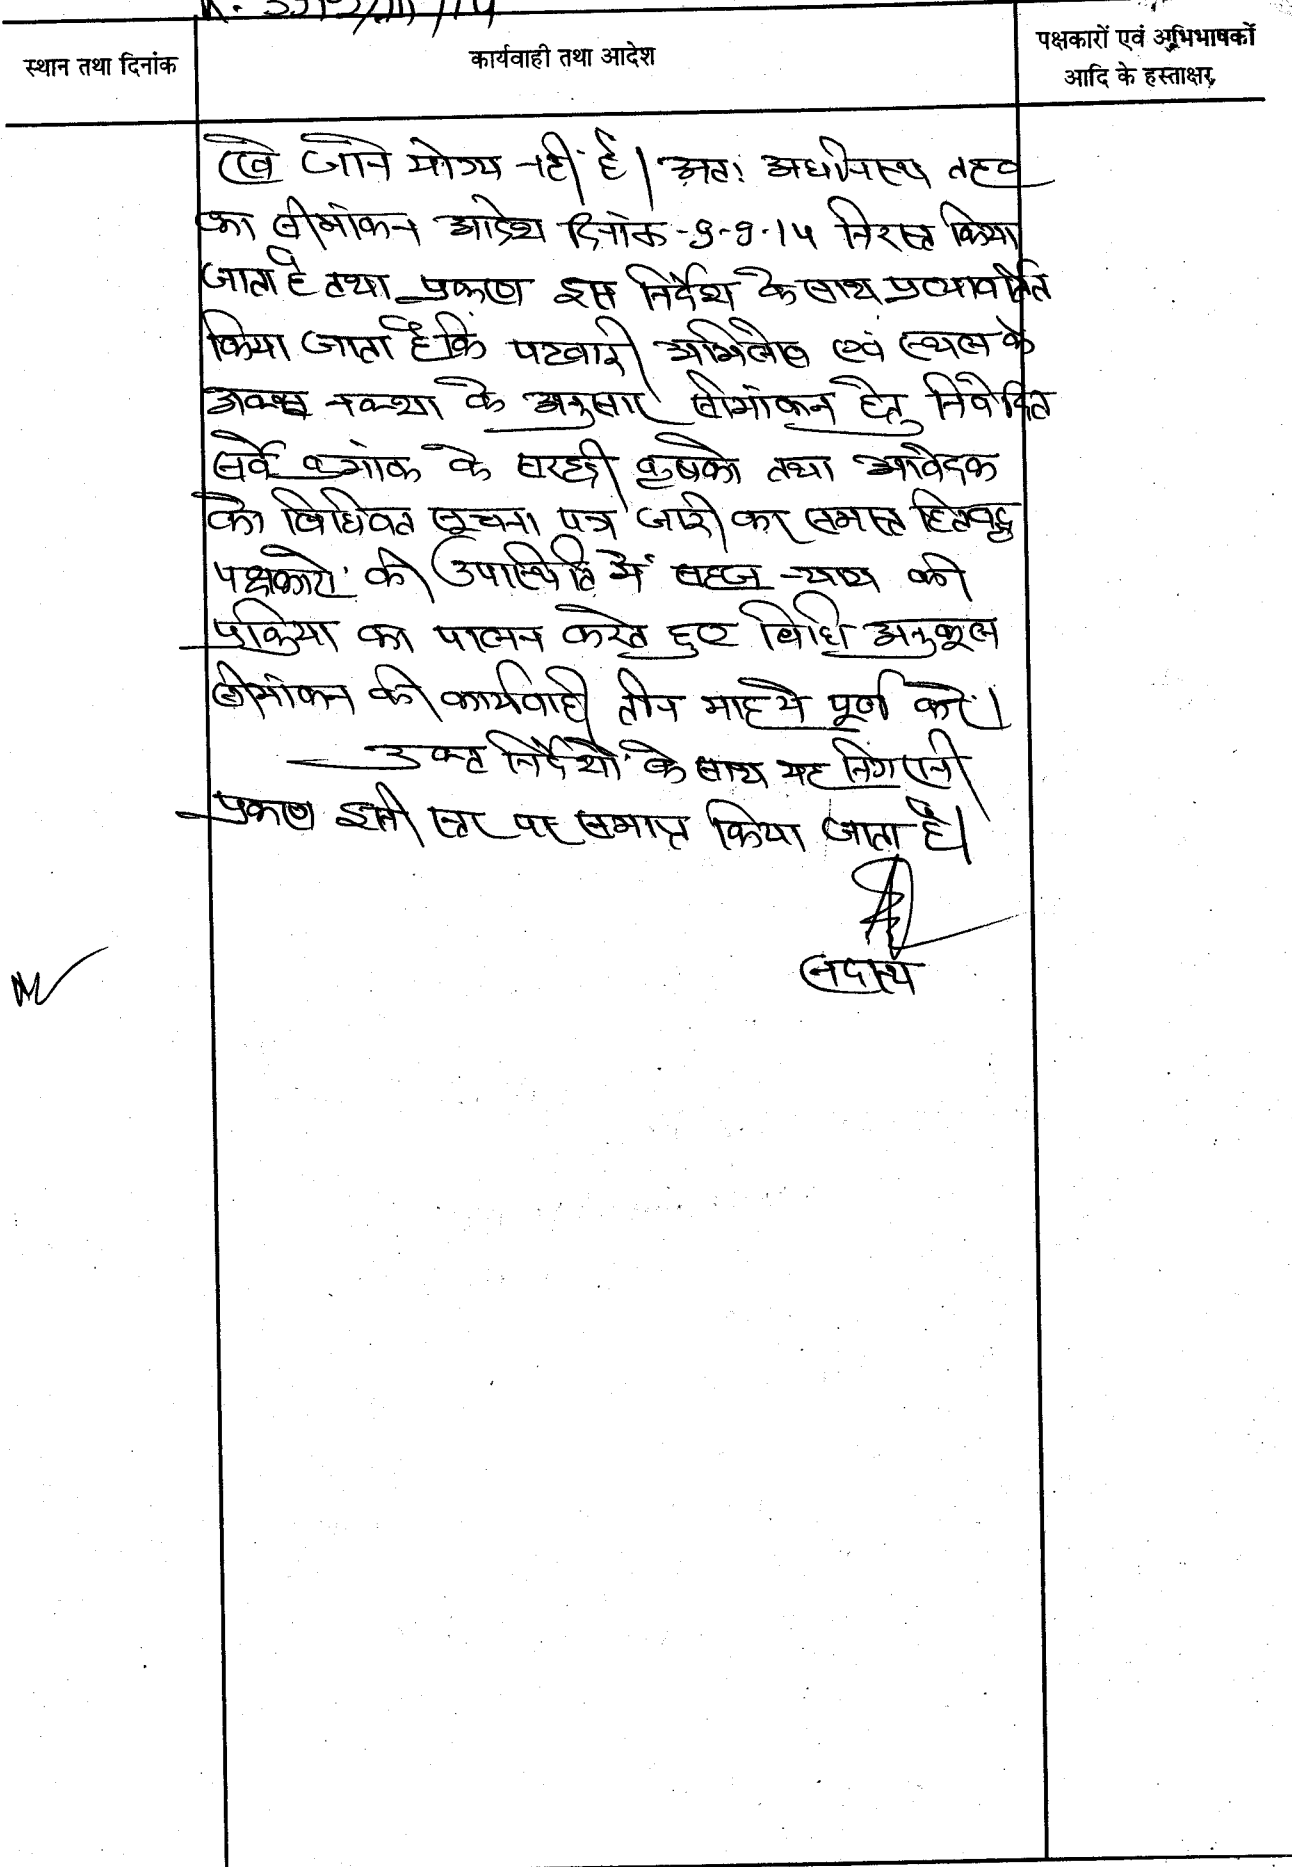 स्थान तथा दिनांक
कार्यवाही तथा आदेश
पक्षकारों एवं अभिभाषकों
आदि के हस्ताक्षर
रखे जाने योग्य नहीं है। अतः अधीनस्थ तह०
का सीमांकन आदेश दिनांक-9-9-14 निरस्त किया
जाता है तथा प्रकरण इस निर्देश के साथ प्रत्यावर्तित
किया जाता है कि पटवारी अभिलेख एवं स्थल के
अक्स नक्शा के अनुसार सीमांकन हेतु निवेदित
सर्वे क्रमांक के सरहदी कृषको तथा आवेदक
को विधिवत सूचना पत्र जारी कर समस्त हितबद्ध
पक्षकारो की उपस्थिति में सहज न्याय की
प्रक्रिया का पालन करते हुए विधि अनुकूल
सीमांकन की कार्यवाही तीन माह मे पूर्ण करे।
उक्त निर्देशों के साथ यह निगरानी
प्रकरण इसी स्तर पर समाप्त किया जाता है।
सदस्य